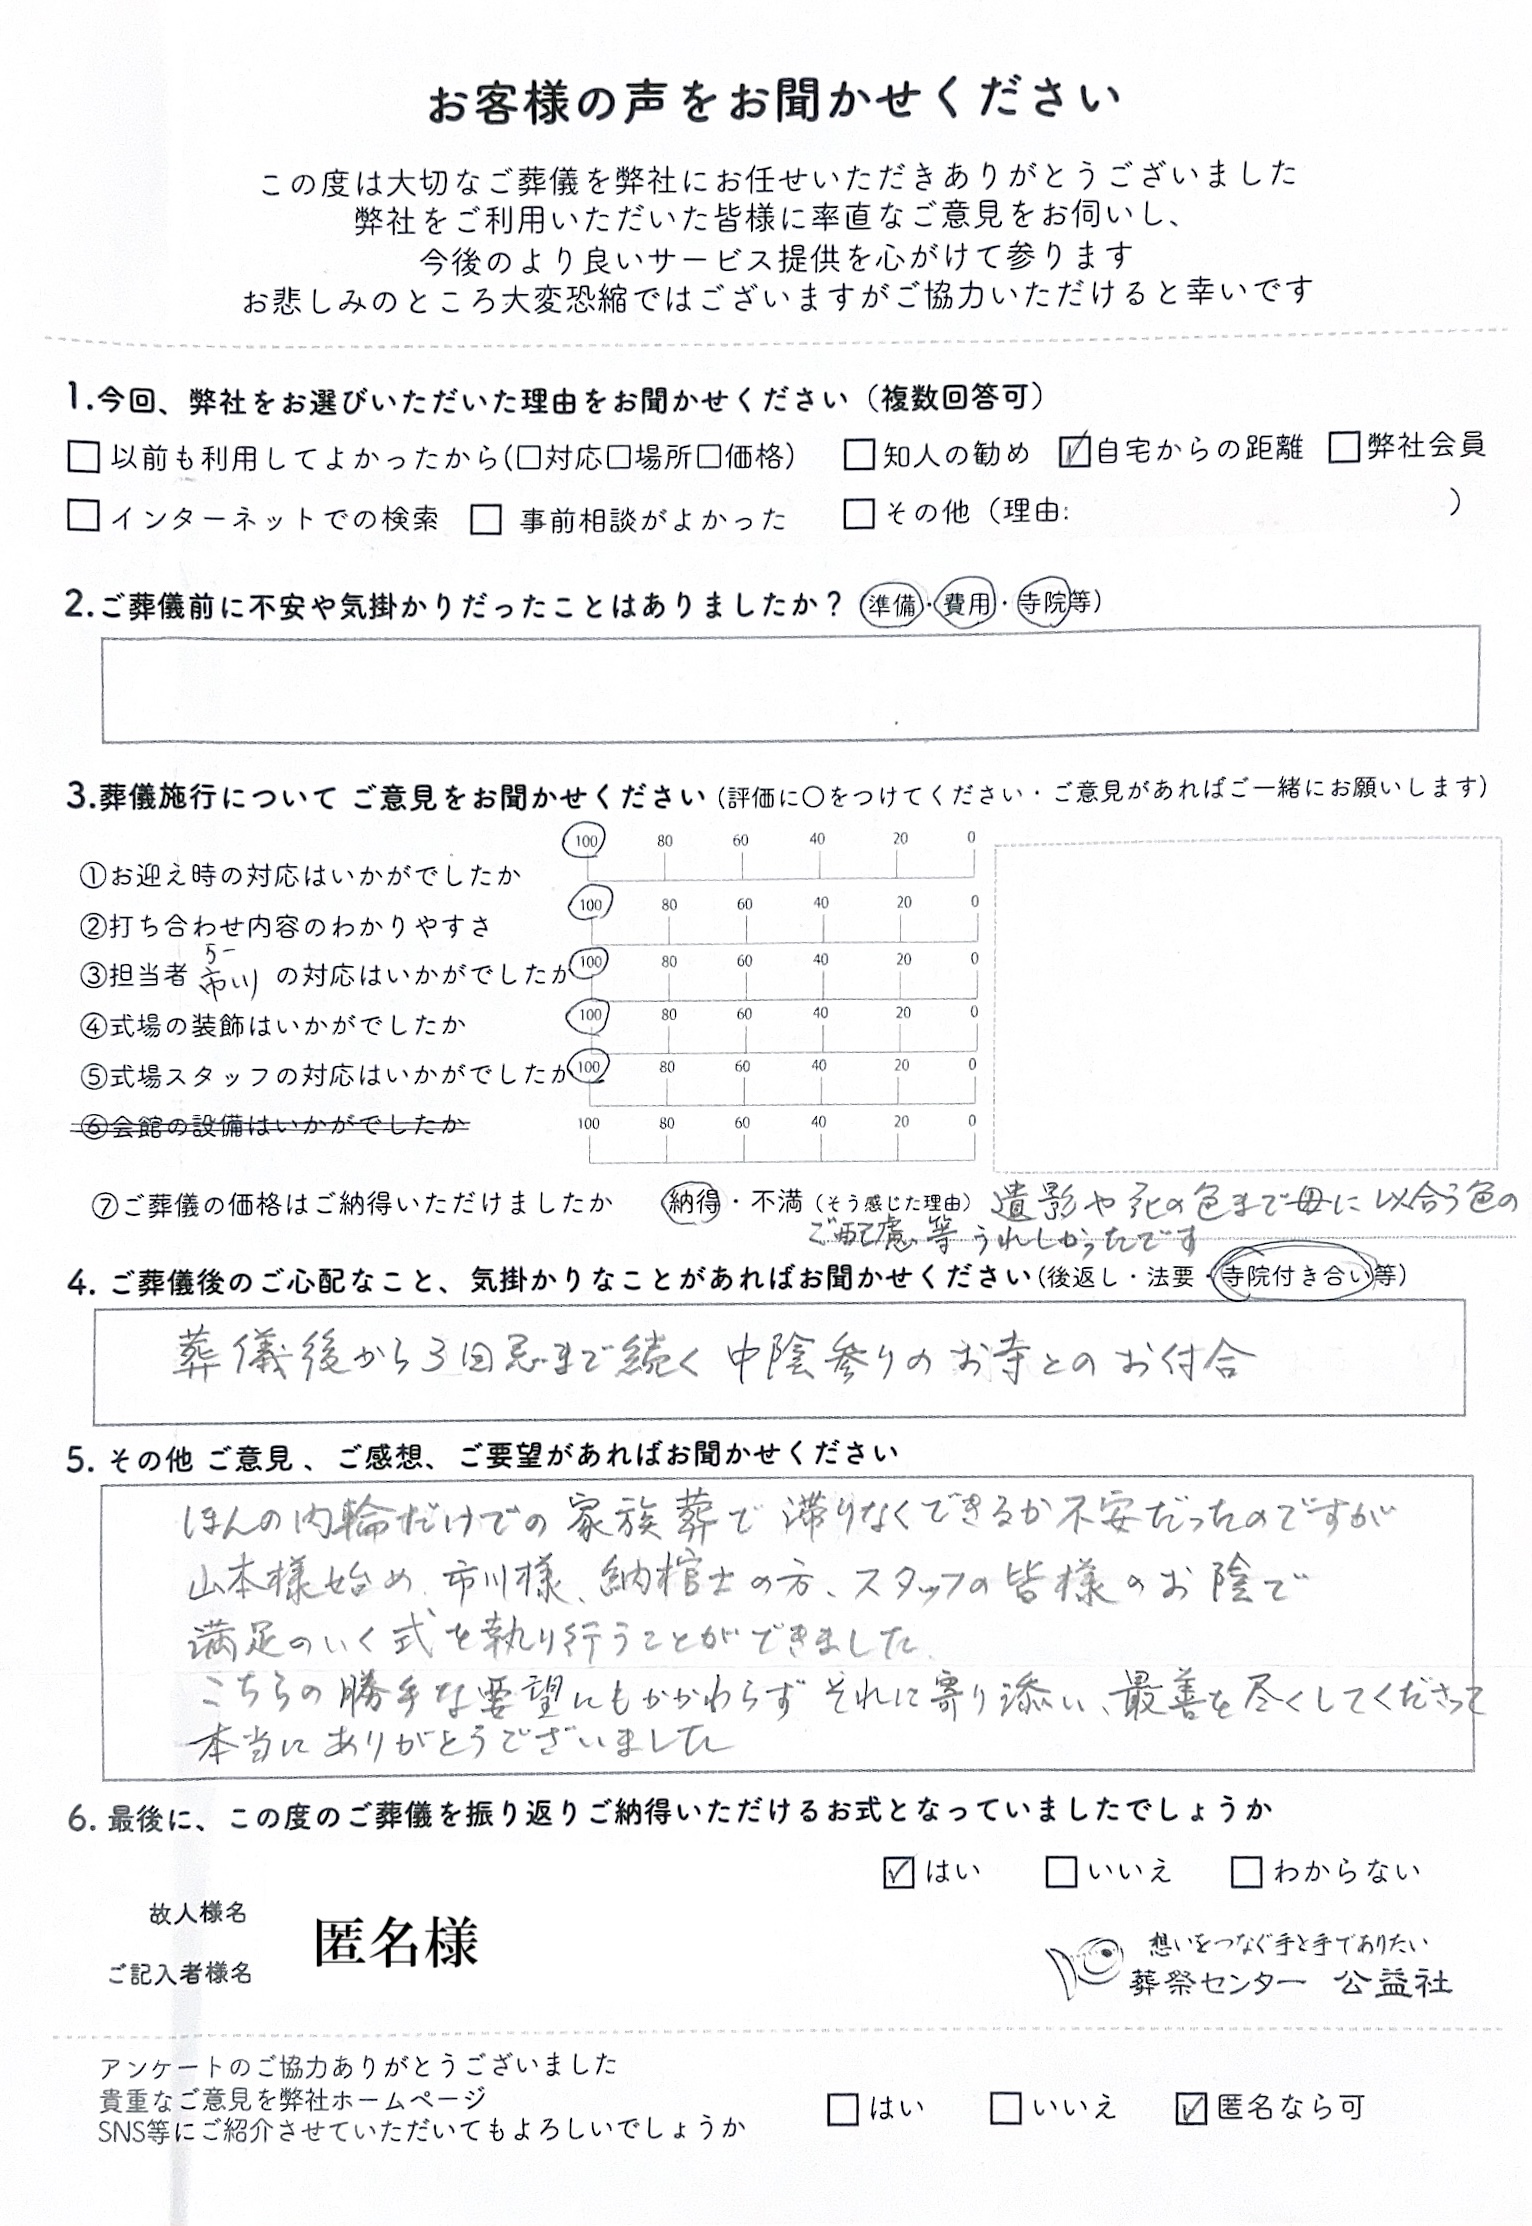 お客様の声をお聞かせください
この度は大切なご葬儀を弊社にお任せいただきありがとうございました
弊社をご利用いただいた皆様に率直なご意見をお伺いし、
今後のより良いサービス提供を心がけて参ります
お悲しみのところ大変恐縮ではございますがご協力いただけると幸いです
1.今回、弊社をお選びいただいた理由をお聞かせください（複数回答可）
□ 以前も利用してよかったから(□対応□場所□価格) □ 知人の勧め ☑ 自宅からの距離 □ 弊社会員
□ インターネットでの検索 □ 事前相談がよかった □ その他（理由: ）
2.ご葬儀前に不安や気掛かりだったことはありましたか？（準備・費用・寺院等）
3.葬儀施行について ご意見をお聞かせください（評価に〇をつけてください・ご意見があればご一緒にお願いします）
100 80 60 40 20 0
①お迎え時の対応はいかがでしたか
100 80 60 40 20 0
②打ち合わせ内容のわかりやすさ
③担当者 市川 の対応はいかがでしたか 100 80 60 40 20 0
④式場の装飾はいかがでしたか 100 80 60 40 20 0
⑤式場スタッフの対応はいかがでしたか 100 80 60 40 20 0
⑥会館の設備はいかがでしたか 100 80 60 40 20 0
⑦ご葬儀の価格はご納得いただけましたか 納得・不満（そう感じた理由） 遺影や花の色まで母に似合う色の
ご配慮等うれしかったです
4. ご葬儀後のご心配なこと、気掛かりなことがあればお聞かせください（後返し・法要・寺院付き合い等）
葬儀後から3回忌まで続く中陰参りのお寺とのお付合
5. その他 ご意見 、ご感想、ご要望があればお聞かせください
ほんの内輪だけでの家族葬で滞りなくできるか不安だったのですが
山本様始め、市川様、納棺士の方、スタッフの皆様のお陰で
満足のいく式を執り行うことができました。
こちらの勝手な要望にもかかわらずそれに寄り添い、最善を尽くしてくださって
本当にありがとうございました
6. 最後に、この度のご葬儀を振り返りご納得いただけるお式となっていましたでしょうか
☑ はい □ いいえ □ わからない
故人様名
匿名様
ご記入者様名
想いをつなぐ手と手でありたい
葬祭センター 公益社
アンケートのご協力ありがとうございました
貴重なご意見を弊社ホームページ
SNS等にご紹介させていただいてもよろしいでしょうか
□ はい □ いいえ ☑ 匿名なら可